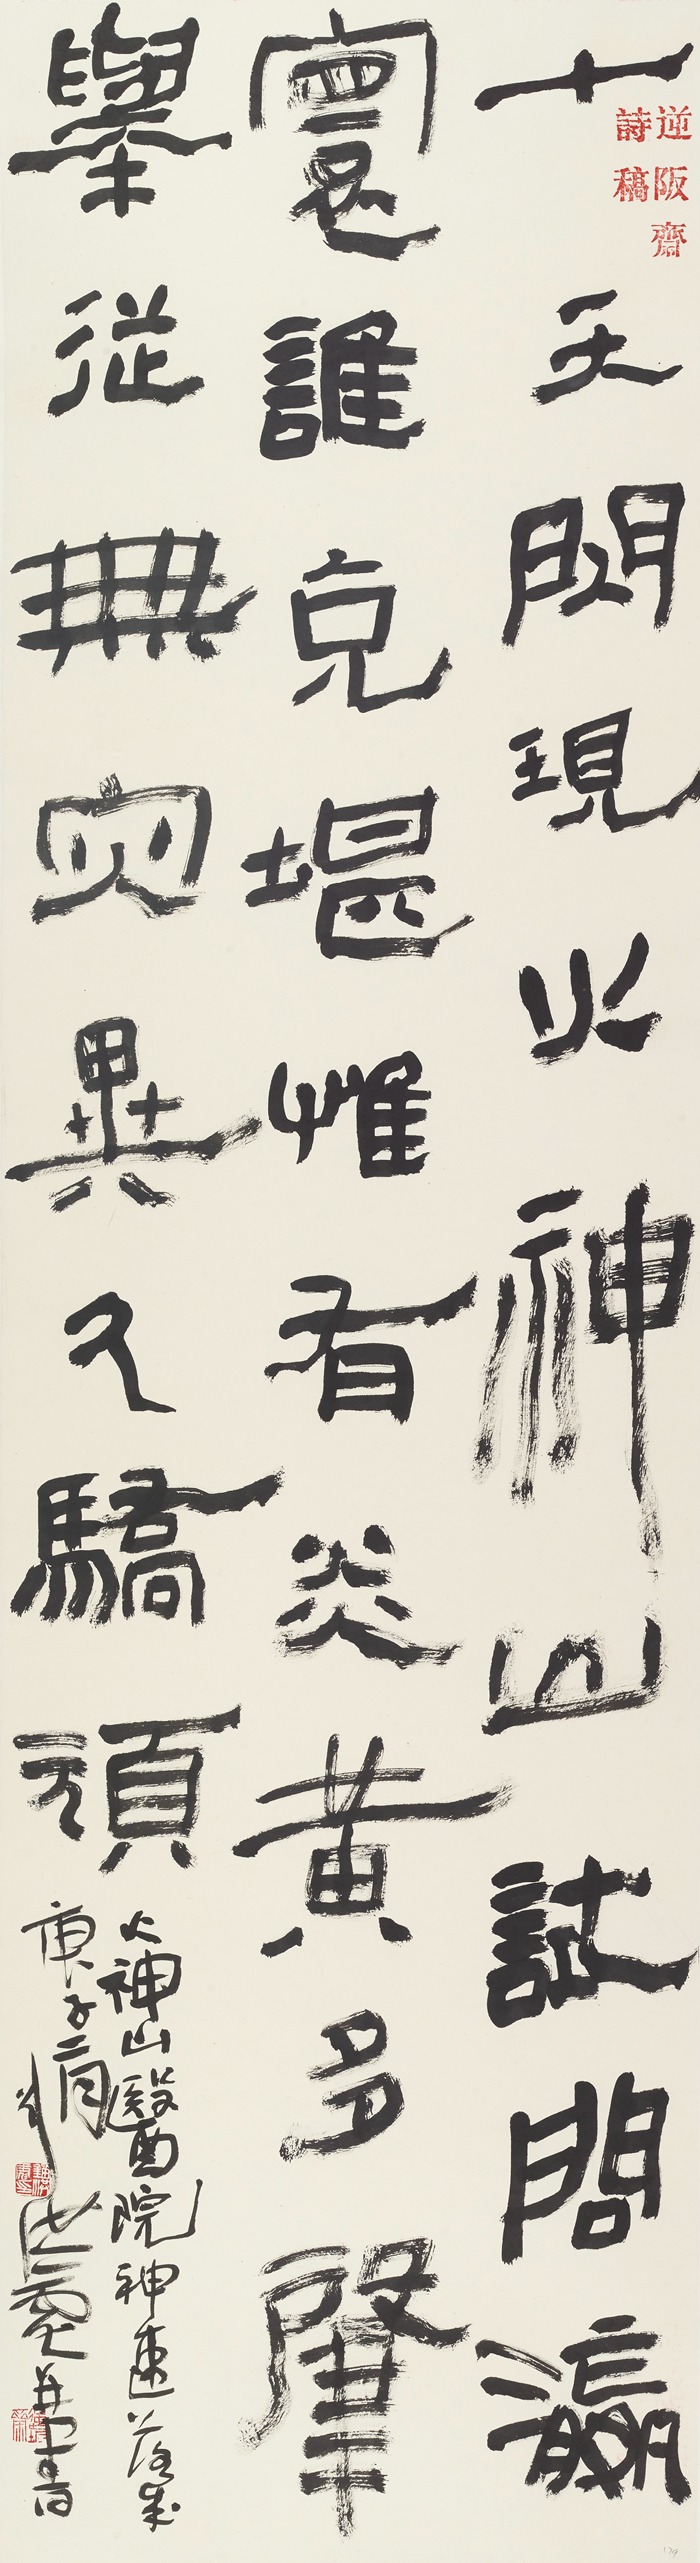 逆阪齋
詩稿
十天閃現火神山試問瀛
寰誰克堪惟有炎黃多肇
舉從無災異久驕頑
火神山醫院神速落成
庚子二月 并書